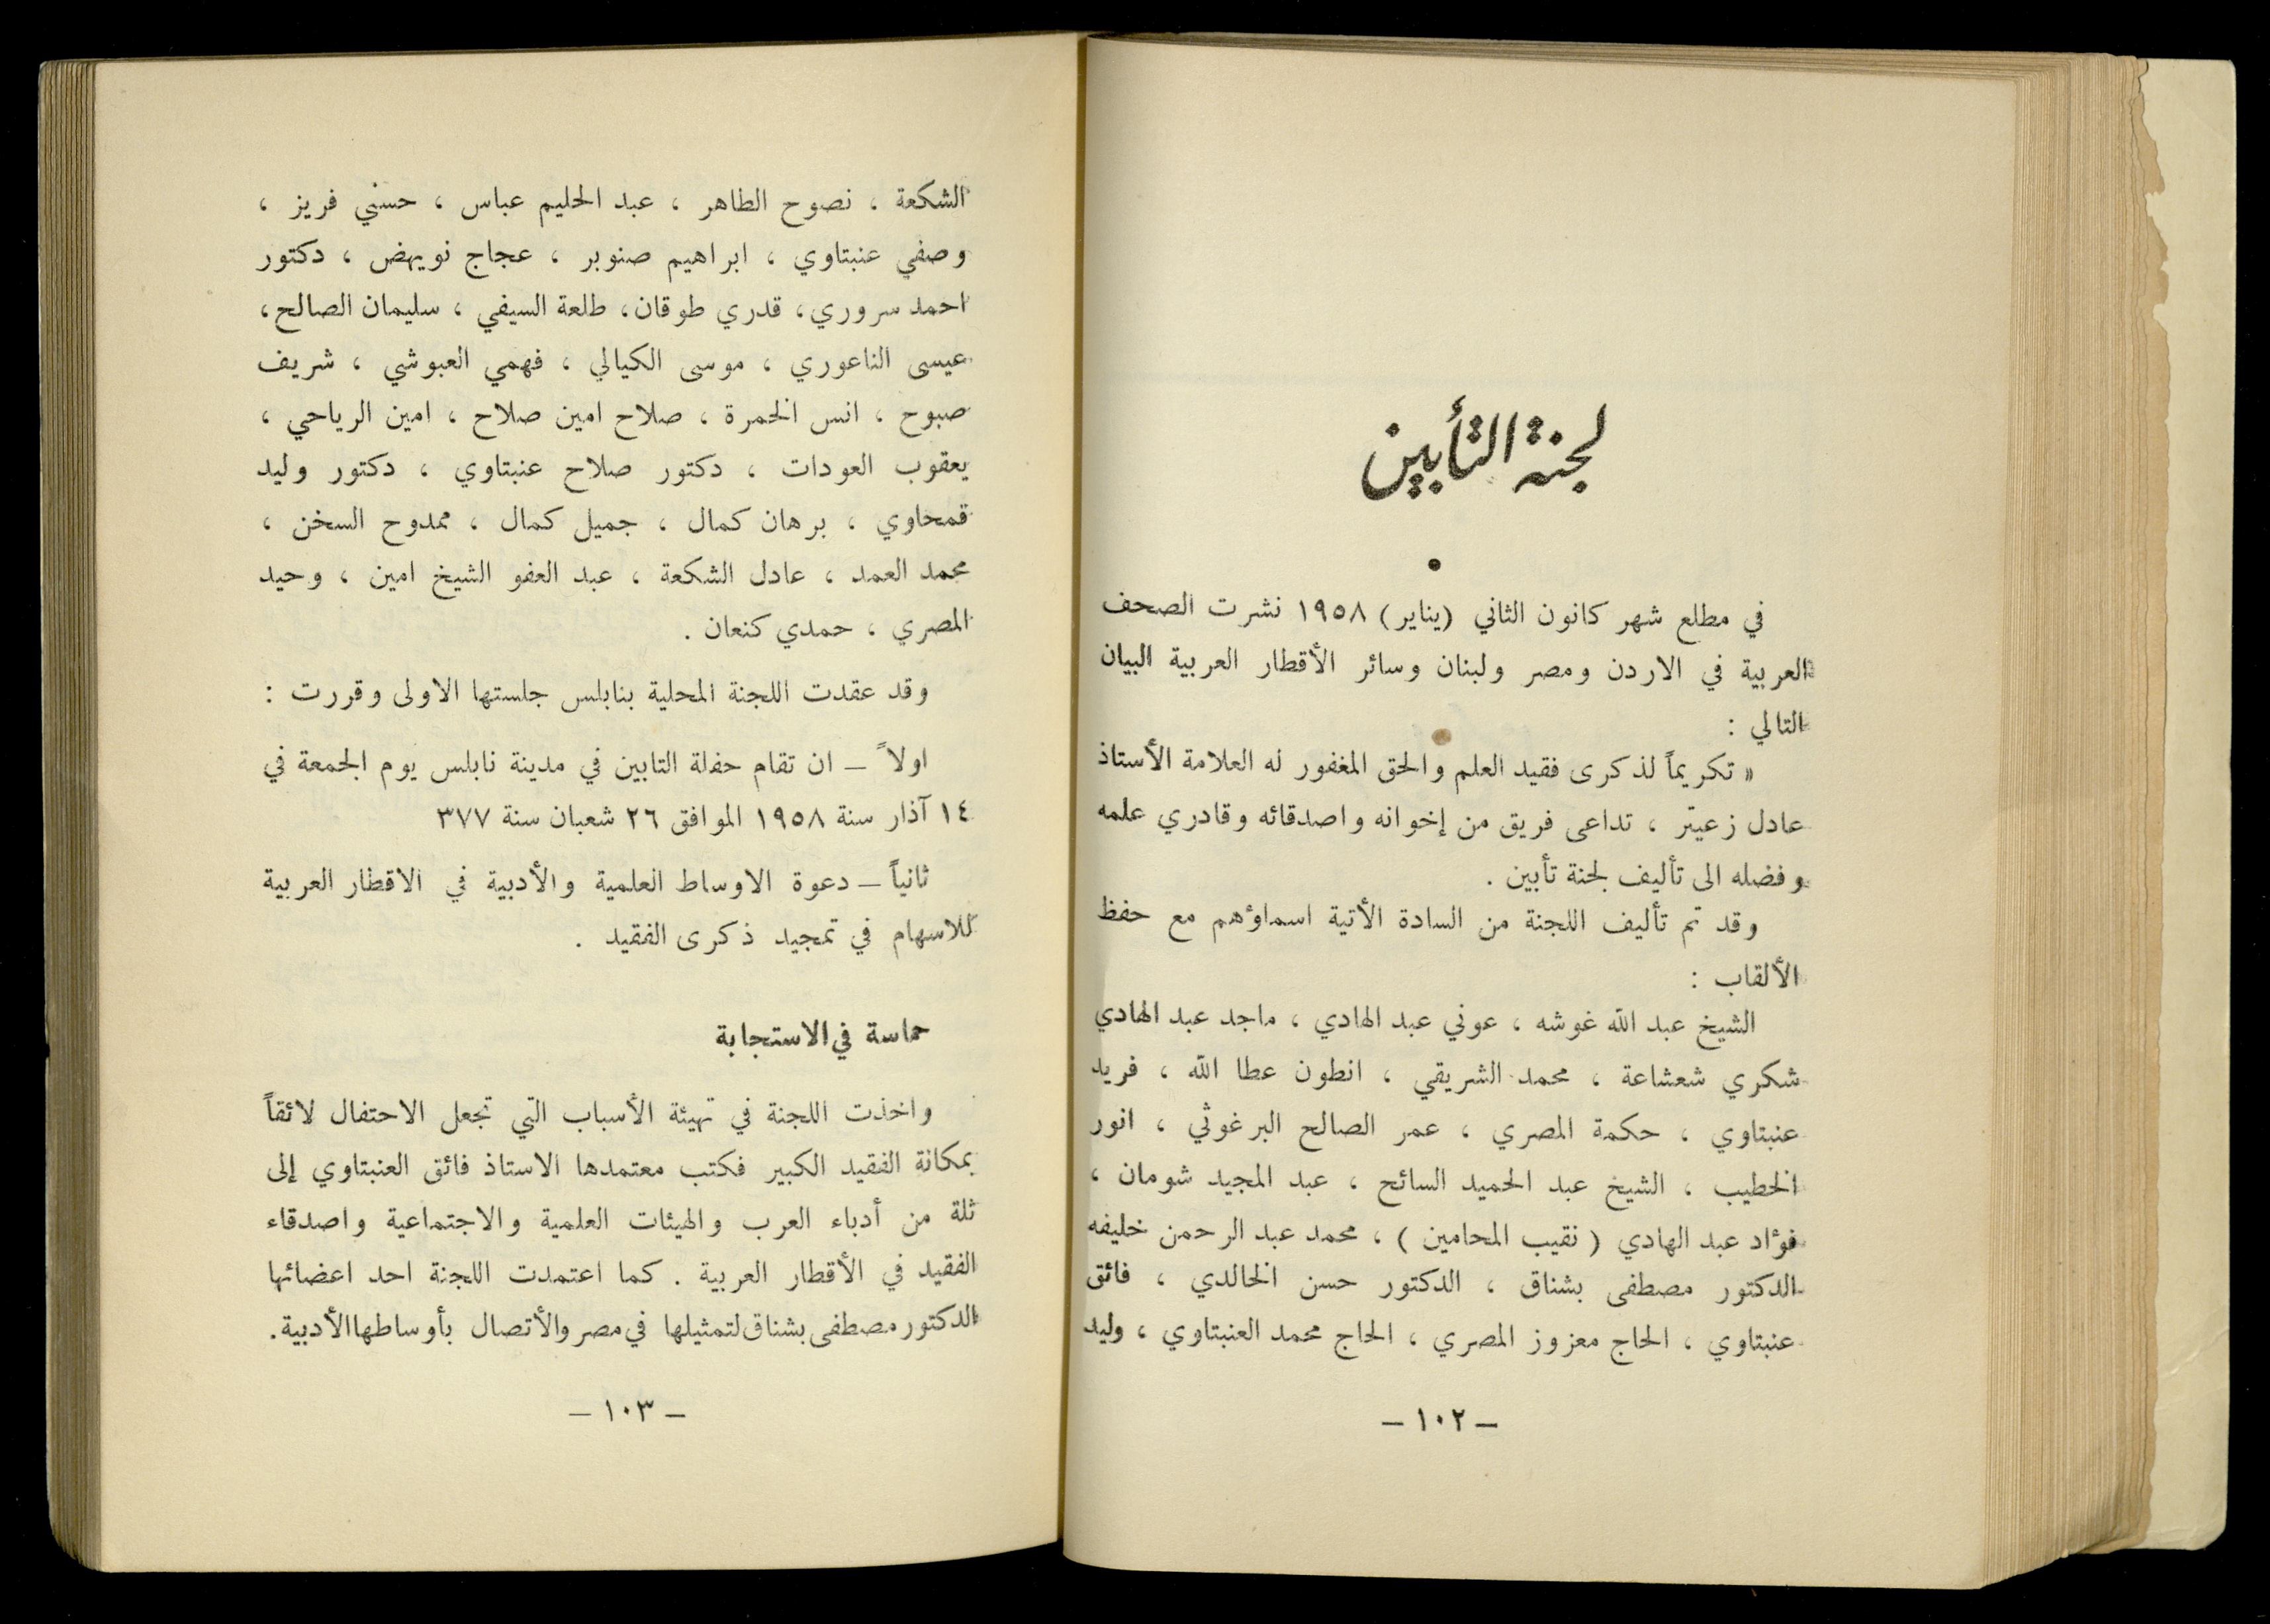 لجنة التأبين
•
في مطلع شهر كانون الثاني (يناير) ١٩٥٨ نشرت الصحف
العربية في الاردن ومصر ولبنان وسائر الأقطار العربية البيان
التالي :
« تكريماً لذكرى فقيد العلم والحق المغفور له العلامة الأستاذ
عادل زعيتر ، تداعى فريق من إخوانه واصدقائه وقادري علمه
وفضله الى تأليف لجنة تأبين .
وقد تم تأليف اللجنة من السادة الأتية اسماؤهم مع حفظ
الألقاب :
الشيخ عبد الله غوشه ، عوني عبد الهادي ، ماجد عبد الهادي
شكري شعشاعة ، محمد الشريقي ، انطون عطا الله ، فريد
عنبتاوي ، حكمة المصري ، عمر الصالح البرغوثي ، انور
الخطيب ، الشيخ عبد الحميد السائح ، عبد المجيد شومان ،
فؤاد عبد الهادي ( نقيب المحامين ) ، محمد عبد الرحمن خليفه
الدكتور مصطفى بشناق ، الدكتور حسن الخالدي ، فائق
عنبتاوي ، الحاج معزوز المصري ، الحاج محمد العنبتاوي ، وليد
– ١٠٢ –
الشكعة ، نصوح الطاهر ، عبد الحليم عباس ، حسني فريز ،
وصفي عنبتاوي ، ابراهيم صنوبر ، عجاج نويهض ، دكتور
احمد سروري ، قدري طوقان ، طلعة السيفي ، سليمان الصالح ،
عيسى الناعوري ، موسى الكيالي ، فهمي العبوشي ، شريف
صبوح ، انس الخمرة ، صلاح امين صلاح ، امين الرياحي ،
يعقوب العودات ، دكتور صلاح عنبتاوي ، دكتور وليد
قمحاوي ، برهان كمال ، جميل كمال ، ممدوح السخن ،
محمد العمد ، عادل الشكعة ، عبد العفو الشيخ امين ، وحيد
المصري ، حمدي كنعان .
وقد عقدت اللجنة المحلية بنابلس جلستها الاولى وقررت :
اولاً – ان تقام حفلة التابين في مدينة نابلس يوم الجمعة في
١٤ آذار سنة ١٩٥٨ الموافق ٢٦ شعبان سنة ٣٧٧
ثانياً – دعوة الاوساط العلمية والأدبية في الاقطار العربية
للاسهام في تمجيد ذكرى الفقيد .
حماسة في الاستجابة
واخذت اللجنة في تهيئة الأسباب التي تجعل الاحتفال لائقاً
بمكانة الفقيد الكبير فكتب معتمدها الاستاذ فائق العنبتاوي إلى
ثلة من أدباء العرب والهيئات العلمية والاجتماعية واصدقاء
الفقيد في الأقطار العربية . كما اعتمدت اللجنة احد اعضائها
الدكتور مصطفى بشناق لتمثيلها في مصر والأتصال بأوساطها الأدبية .
– ١٠٣ –